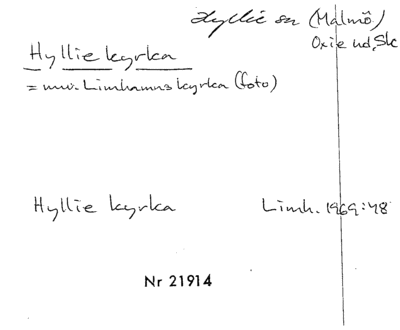 Hyllie sn (Malmö)
Oxie hd, Skå
Hyllie kyrka
= nuv. Limhamns kyrka (foto)
Hyllie kyrka Limh. 1969:48
Nr 21914